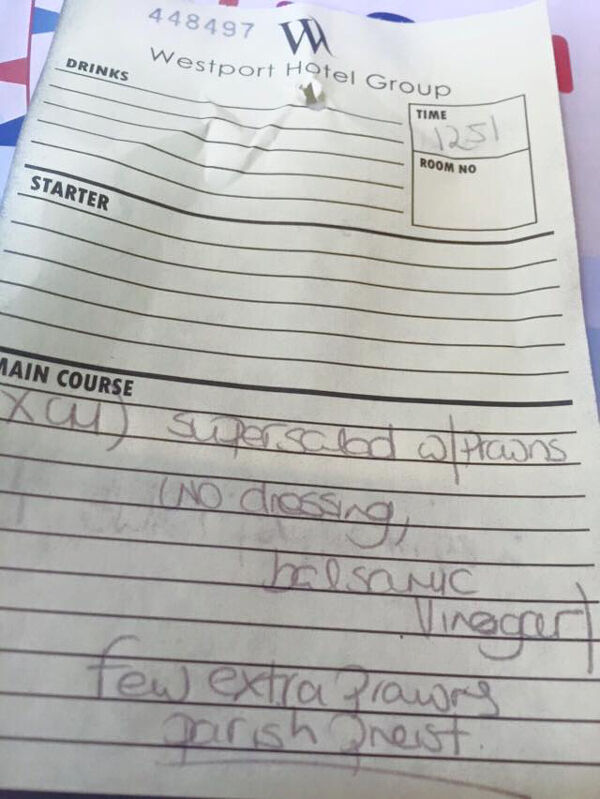 448497
Westport Hotel Group
DRINKS
TIME
1251
ROOM NO
STARTER
MAIN COURSE
supersalad w/Prawns
(NO dressing,
balsamic
Vinegar)
few extra Prawns
parish Preist.